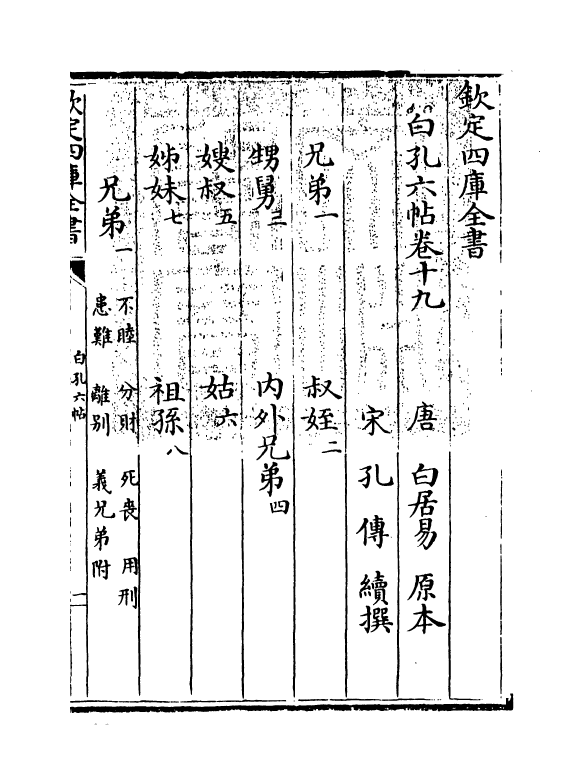 欽定四庫全書
白孔六帖卷十九
唐 白居易 原本
宋 孔傳 續撰
兄弟一 叔姪二
甥舅三 内外兄弟四
嫂叔五 姑六
姊妹七 祖孫八
兄弟一
不睦 分財 死喪 用刑
患難 離別 義兄弟附
欽定四庫全書
白孔六帖
一